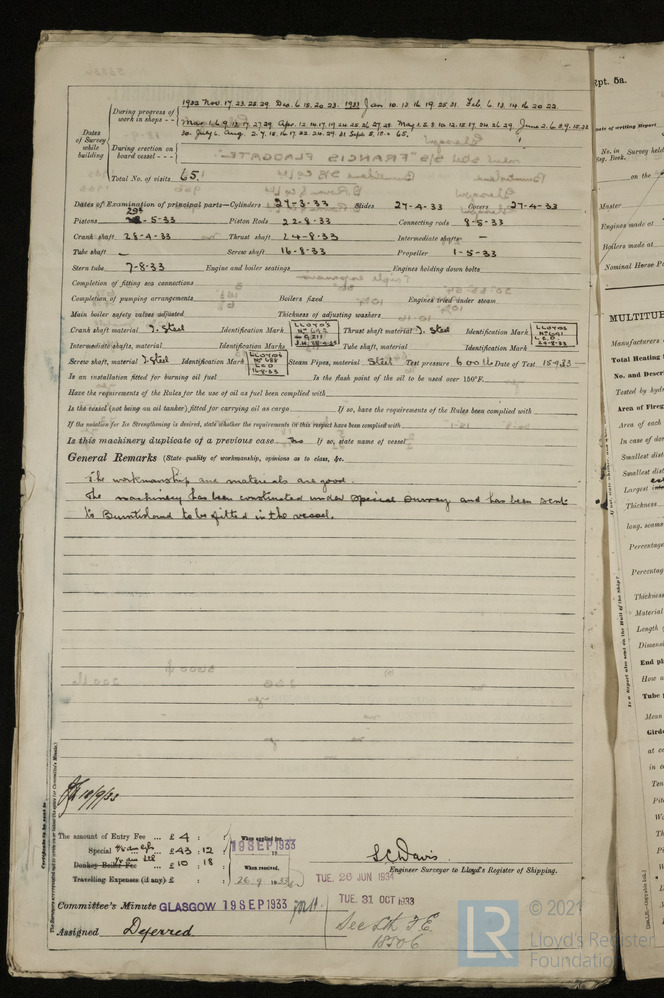 1932 Nov. 17. 23. 25. 29. Dec. 6. 15. 20. 23. 1933 Jan 10. 13. 16 19 25. 31. Feb. 6. 13. 14 16 20 22.
During progress of work in shops - -
Mar. 1. 6. 9. 13. 17. 27. 29 Apr. 12. 14. 17. 19 24. 25. 26. 27. 28. May 1. 5. 8. 10. 12. 15. 17. 24. 26. 29. June 2. 6. 8. 9. 15. 22
30. July 6. Aug. 2. 7. 15. 16. 17. 22. 24. 29. 31 Sept. 5. 15. = 65.
Dates of Survey while building
During erection on board vessel - - -
Total No. of visits 65
Dates of Examination of principal parts—Cylinders 27-3-33 Slides 27-4-33 Covers 27-4-33
Pistons 29th-5-33 Piston Rods 22-8-33 Connecting rods 8-5-33
Crank shaft 28-4-33 Thrust shaft 24-8-33 Intermediate shafts —
Tube shaft — Screw shaft 16-8-33 Propeller 1-5-33
Stern tube 7-8-33 Engine and boiler seatings Engines holding down bolts
Completion of fitting sea connections
Completion of pumping arrangements Boilers fixed Engines tried under steam
Main boiler safety valves adjusted Thickness of adjusting washers
Crank shaft material I. Steel Identification Mark LLOYD'S Thrust shaft material I. Steel Identification Mark LLOYD'S L.C.D. 24-8-33
Intermediate shafts, material Identification Marks Tube shaft, material Identification Mark
Screw shaft, material I. Steel Identification Mark LLOYD'S L.C.D. 16-8-33 Steam Pipes, material Steel Test pressure 600 lb Date of Test 15-9-33
Is an installation fitted for burning oil fuel Is the flash point of the oil to be used over 150°F.
Have the requirements of the Rules for the use of oil as fuel been complied with
Is the vessel (not being an oil tanker) fitted for carrying oil as cargo If so, have the requirements of the Rules been complied with
If the notation for Ice Strengthening is desired, state whether the requirements in this respect have been complied with
Is this machinery duplicate of a previous case No If so, state name of vessel
General Remarks (State quality of workmanship, opinions as to class, &c.
The workmanship and materials are good.
The machinery has been constructed under special survey and has been sent
to Burntisland to be fitted in the vessel.
18/9/33
The amount of Entry Fee ... £ 4 : :
Special ... £ 43 : 12 :
Donkey Boiler Fee ... £ 10 : 18
Travelling Expenses (if any) £ : :
When applied for,
19 SEP 1933
When received,
26. 9. 1933
S.C. Davis.
Engineer Surveyor to Lloyd's Register of Shipping.
TUE. 26 JUN 1934
TUE. 31 OCT 1933
Committee's Minute GLASGOW 19 SEP 1933
Assigned Deferred
See Lth. J.E.
18506
LR
© 2021
Lloyd's Register
Foundation
Rpt. 5a.
Date of writing Report
No. in Survey held
Reg. Book.
on the
Master
Engines made at
Boilers made at
Nominal Horse Po
MULTITUB
Manufacturers
Total Heating
No. and Descr
Tested by hydr
Area of Fireg
Area of each
In case of don
Smallest dist
Smallest dist
Largest
Thickness
long. seams
Percentage
Percentag
Thickness
Material
Length
Dimensi
End pl
How a
Tube
Mean
Girde
at ce
in c
Ten
Pit